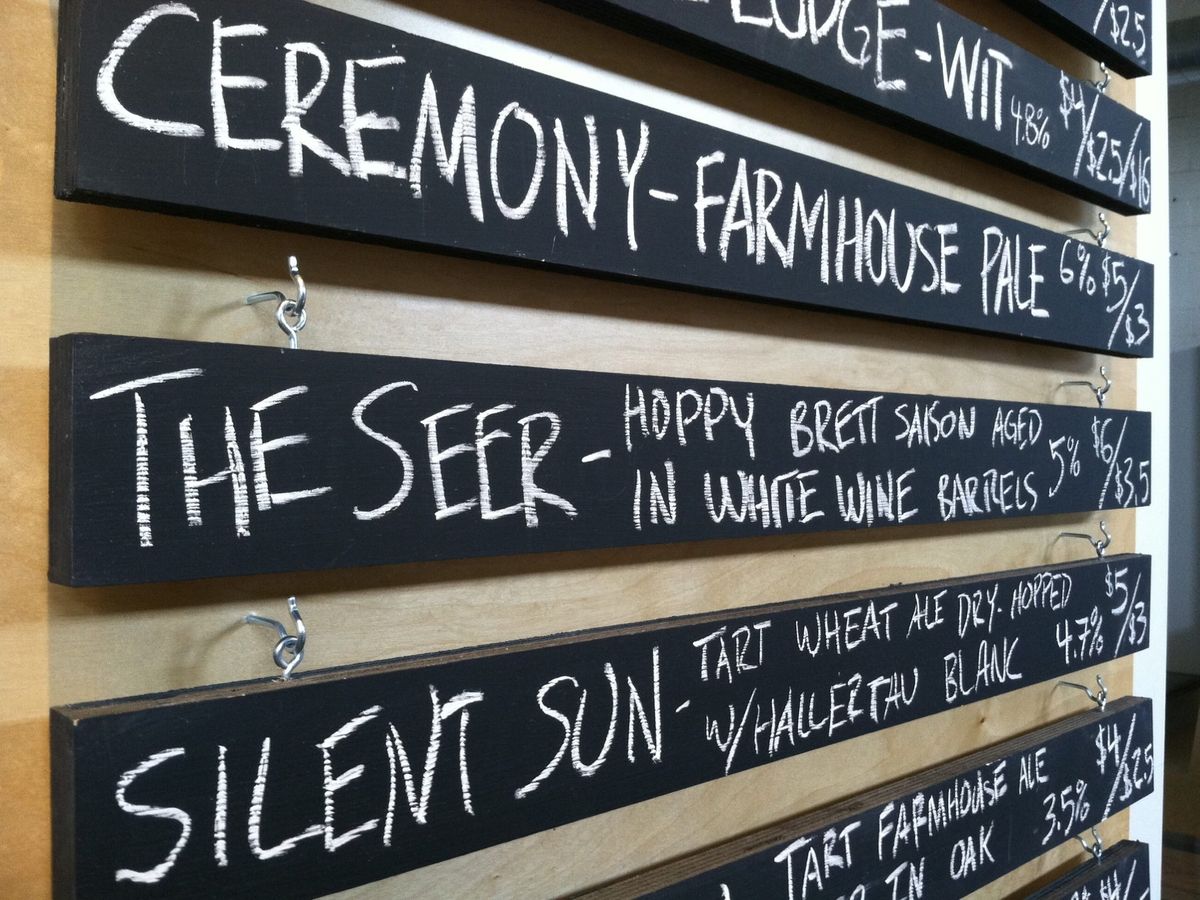 /$2.5
LODGE-WIT 4.8% $4/$2.5/$16
CEREMONY-FARMHOUSE PALE 6% $5/$3
THE SEER- HOPPY BRETT SAISON AGED
IN WHITE WINE BARRELS 5% $6/$3.5
SILENT SUN- TART WHEAT ALE DRY-HOPPED
W/HALLERTAU BLANC 4.7% $5/$3
TART FARMHOUSE ALE
IN OAK 3.5% $4/$2.5
$4/